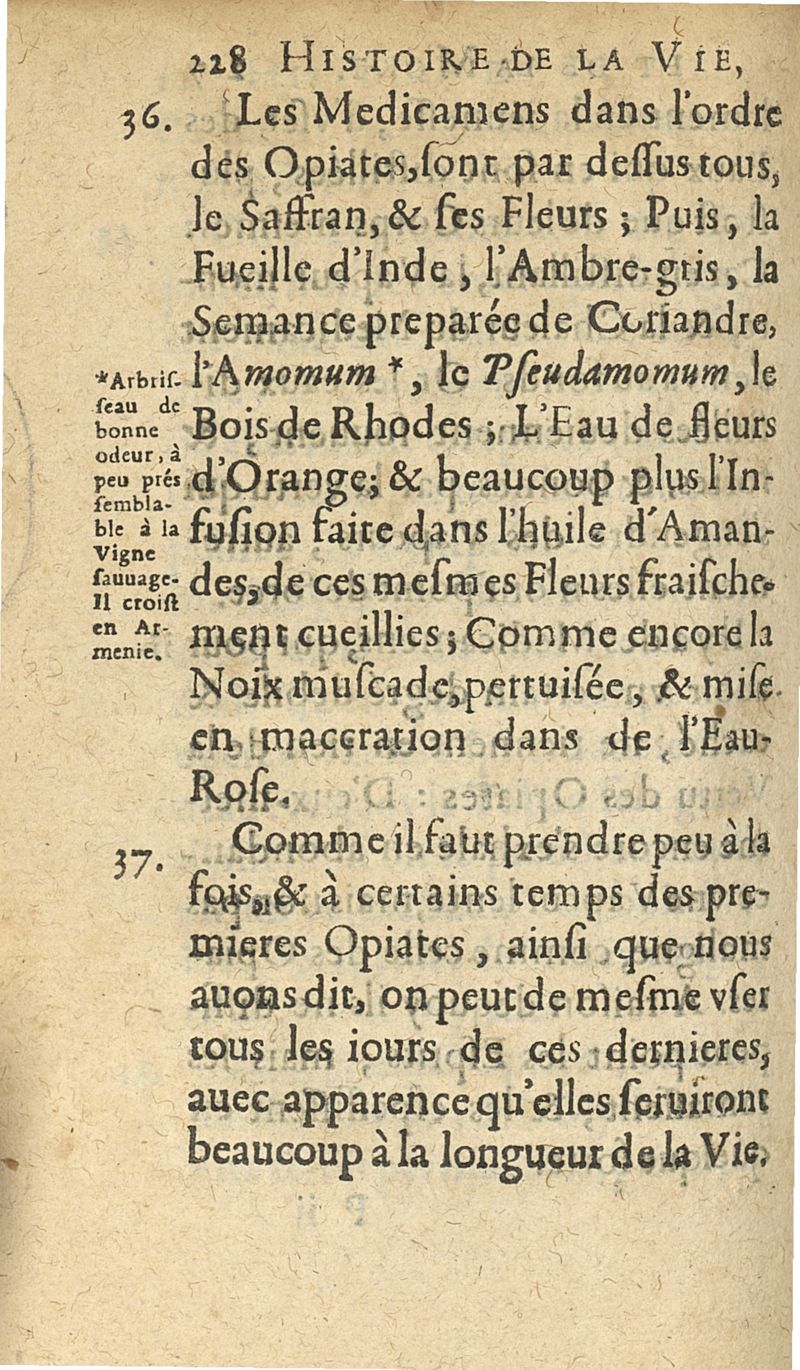 228 HISTOIRE DE LA VIE,
36. Les Medicamens dans l'ordre
des Opiates, ſont par deſſus tous,
le Saffran, & ſes Fleurs ; Puis, la
Fueille d'Inde, l'Ambre-gris, la
Semance preparée de Coriandre,
l'Amomum *, le Pſeudamomum, le
Bois de Rhodes ; L'Eau de fleurs
d'Orange; & beaucoup plus l'In-
fuſion faite dans l'huile d'Aman-
des, de ces meſmes Fleurs fraiſche-
ment cueillies ; Comme encore la
Noix muſcade, pertuiſée, & miſe
en maceration dans de l'Eau-
Roſe.
*Arbriſ-
ſeau de
bonne
odeur, à
peu prés
ſembla-
ble à la
Vigne
ſauuage.
Il croiſt
en Ar-
menie.
37. Comme il faut prendre peu à la
fois, & à certains temps des pre-
mieres Opiates, ainſi que nous
auons dit, on peut de meſme vſer
tous les iours de ces dernieres,
auec apparence qu'elles ſeruiront
beaucoup à la longueur de la Vie.